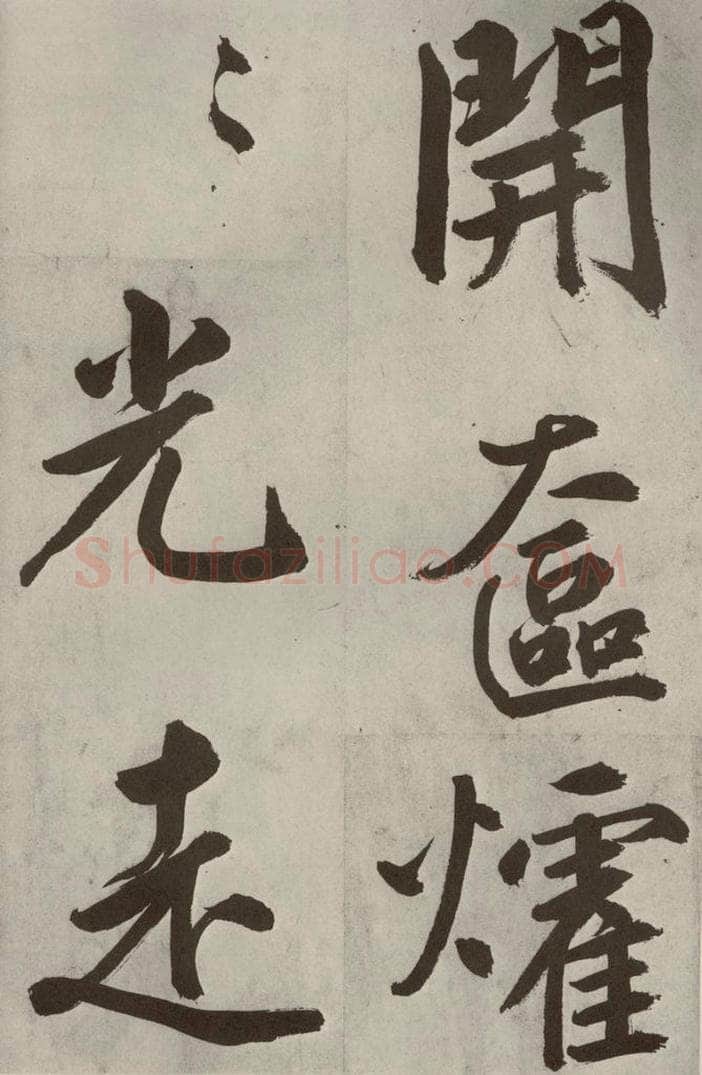 開奩㸌
〻光走
Shufaziliao.COM